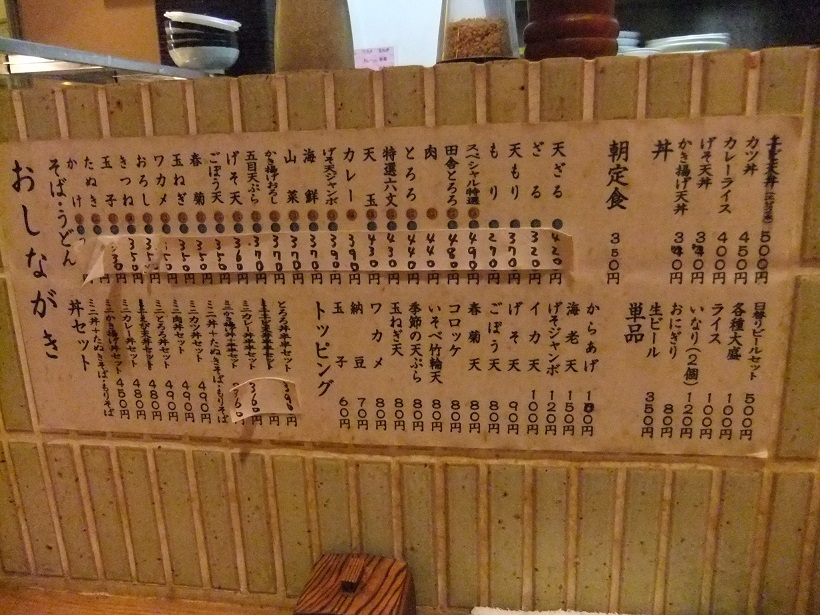 おしながき
そば・うどん
かけ
たぬき
玉子
きつね 350円
おろし 350円
ワカメ 350円
玉ねぎ 350円
春菊 350円
ごぼう天 350円
げそ天 360円
五目天ぷら 370円
かき揚げおろし 370円
山菜 370円
海鮮 370円
げそ天ジャンボ 390円
カレー 390円
天玉 430円
特選六文 430円
とろろ 440円
肉 440円
田舎とろろ 480円
スペシャル特選 490円
もり 290円
天もり 370円
ざる 320円
天ざる 420円
朝定食 350円
丼
かき揚げ天丼
げそ天丼
カレーライス 400円
カツ丼 450円
500円
丼セット
ミニ丼+たぬきそば・もりそば
ミニかき揚げ丼セット 450円
ミニカレー丼セット 480円
480円
ミニとろろ丼セット 490円
ミニ肉丼セット 490円
ミニカツ丼セット 490円
ミニ丼+たぬきそば・もりそば
トッピング
玉子 60円
納豆 70円
ワカメ 80円
玉ねぎ天 80円
季節の天ぷら 80円
いそべ竹輪天 80円
コロッケ 80円
春菊天 80円
ごぼう天 80円
げそ天 90円
イカ天 100円
げそジャンボ 120円
海老天 150円
からあげ
単品
生ビール 350円
おにぎり 80円
いなり(2個) 120円
ライス 100円
各種大盛 100円
日替りビールセット 500円